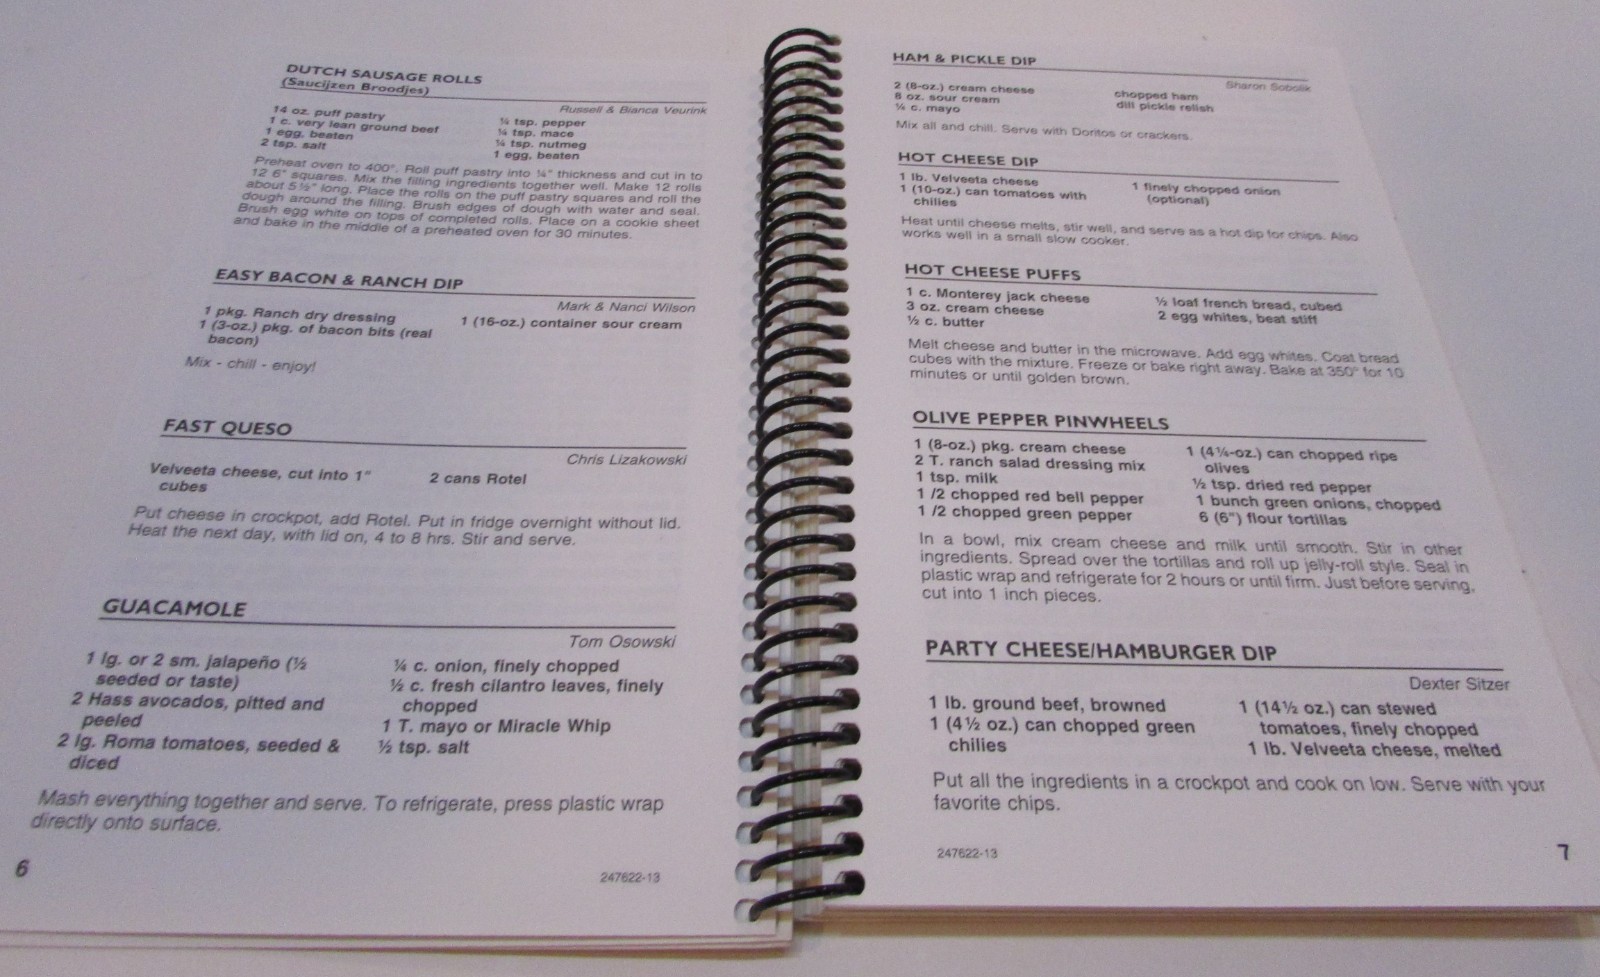 DUTCH SAUSAGE ROLLS
(Saucijzen Broodjes)
Russell & Bianca Veurink
14 oz. puff pastry
1 c. very lean ground beef
1 egg, beaten
2 tsp. salt
¼ tsp. pepper
¼ tsp. mace
¼ tsp. nutmeg
1 egg, beaten
Preheat oven to 400°. Roll puff pastry into ¼" thickness and cut in to
12 6" squares. Mix the filling ingredients together well. Make 12 rolls
about 5½" long. Place the rolls on the puff pastry squares and roll the
dough around the filling. Brush edges of dough with water and seal.
Brush egg white on tops of completed rolls. Place on a cookie sheet
and bake in the middle of a preheated oven for 30 minutes.
EASY BACON & RANCH DIP
Mark & Nanci Wilson
1 pkg. Ranch dry dressing
1 (3-oz.) pkg. of bacon bits (real
bacon)
1 (16-oz.) container sour cream
Mix - chill - enjoy!
FAST QUESO
Chris Lizakowski
Velveeta cheese, cut into 1"
cubes
2 cans Rotel
Put cheese in crockpot, add Rotel. Put in fridge overnight without lid.
Heat the next day, with lid on, 4 to 8 hrs. Stir and serve.
GUACAMOLE
Tom Osowski
1 lg. or 2 sm. jalapeño (½
seeded or taste)
2 Hass avocados, pitted and
peeled
2 lg. Roma tomatoes, seeded &
diced
¼ c. onion, finely chopped
½ c. fresh cilantro leaves, finely
chopped
1 T. mayo or Miracle Whip
½ tsp. salt
Mash everything together and serve. To refrigerate, press plastic wrap
directly onto surface.
6
247622-13
HAM & PICKLE DIP
Sharon Sobolik
2 (8-oz.) cream cheese
8 oz. sour cream
¼ c. mayo
chopped ham
dill pickle relish
Mix all and chill. Serve with Doritos or crackers.
HOT CHEESE DIP
1 lb. Velveeta cheese
1 (10-oz.) can tomatoes with
chilies
1 finely chopped onion
(optional)
Heat until cheese melts, stir well, and serve as a hot dip for chips. Also
works well in a small slow cooker.
HOT CHEESE PUFFS
1 c. Monterey jack cheese
3 oz. cream cheese
½ c. butter
½ loaf french bread, cubed
2 egg whites, beat stiff
Melt cheese and butter in the microwave. Add egg whites. Coat bread
cubes with the mixture. Freeze or bake right away. Bake at 350° for 10
minutes or until golden brown.
OLIVE PEPPER PINWHEELS
1 (8-oz.) pkg. cream cheese
2 T. ranch salad dressing mix
1 tsp. milk
1 /2 chopped red bell pepper
1 /2 chopped green pepper
1 (4¼-oz.) can chopped ripe
olives
½ tsp. dried red pepper
1 bunch green onions, chopped
6 (6") flour tortillas
In a bowl, mix cream cheese and milk until smooth. Stir in other
ingredients. Spread over the tortillas and roll up jelly-roll style. Seal in
plastic wrap and refrigerate for 2 hours or until firm. Just before serving,
cut into 1 inch pieces.
PARTY CHEESE/HAMBURGER DIP
Dexter Sitzer
1 lb. ground beef, browned
1 (4½ oz.) can chopped green
chilies
1 (14½ oz.) can stewed
tomatoes, finely chopped
1 lb. Velveeta cheese, melted
Put all the ingredients in a crockpot and cook on low. Serve with your
favorite chips.
247622-13
7